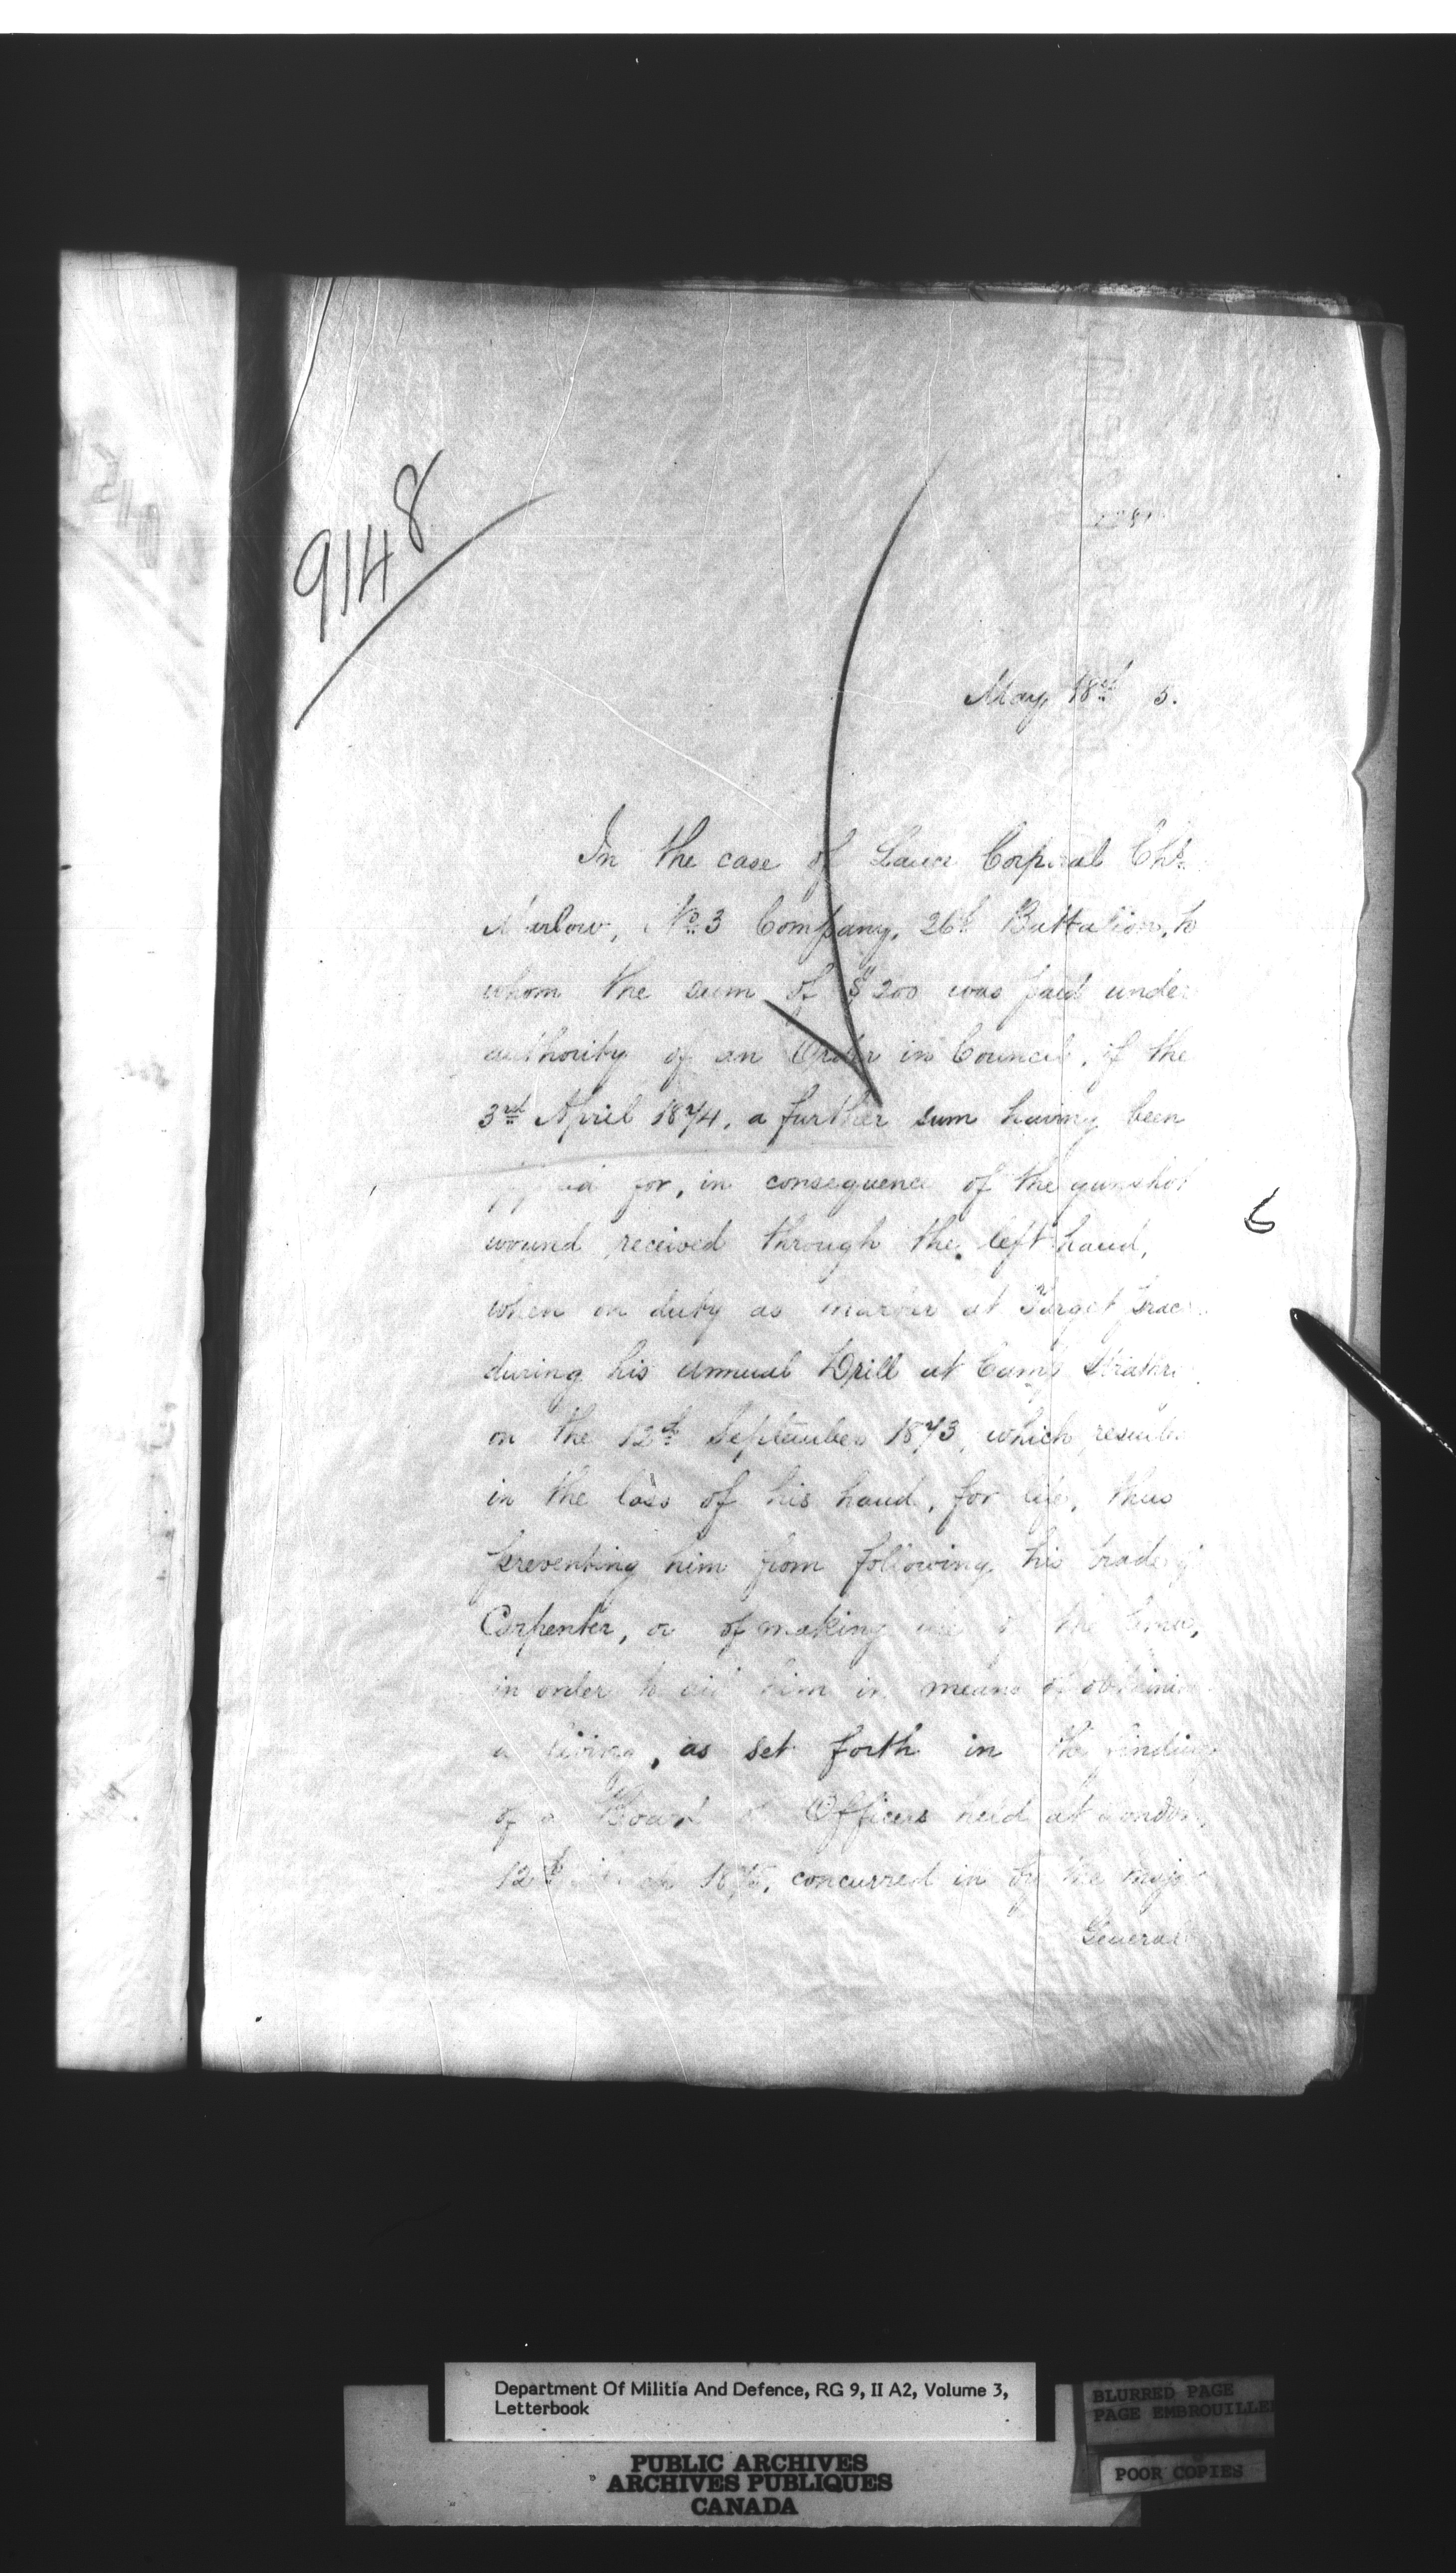 9148
May 18th 5.
In the case of Lance Corporal Chs.
Marlow, No. 3 Company, 26th Battalion, to
whom the sum of $200 was paid under
authority of an Order in Council, of the
3rd April 1874, a further sum having been
for, in consequence of the gunshot
wound received through the left hand,
when on duty as marker at Target prac
during his annual Drill at Camp
on the 12th September 1873, which
in the loss of his hand, for life, thus
preventing him from following his trade of
Carpenter, or of making use of the
in order to aid him in means of
a living, as set forth in the finding
of a Board of Officers held at London,
12th 1875, concurred in by the Major
General
6
Department Of Militia And Defence, RG 9, II A2, Volume 3,
Letterbook
PUBLIC ARCHIVES
ARCHIVES PUBLIQUES
CANADA
BLURRED PAGE
PAGE EMBROUILLEE
POOR COPIES